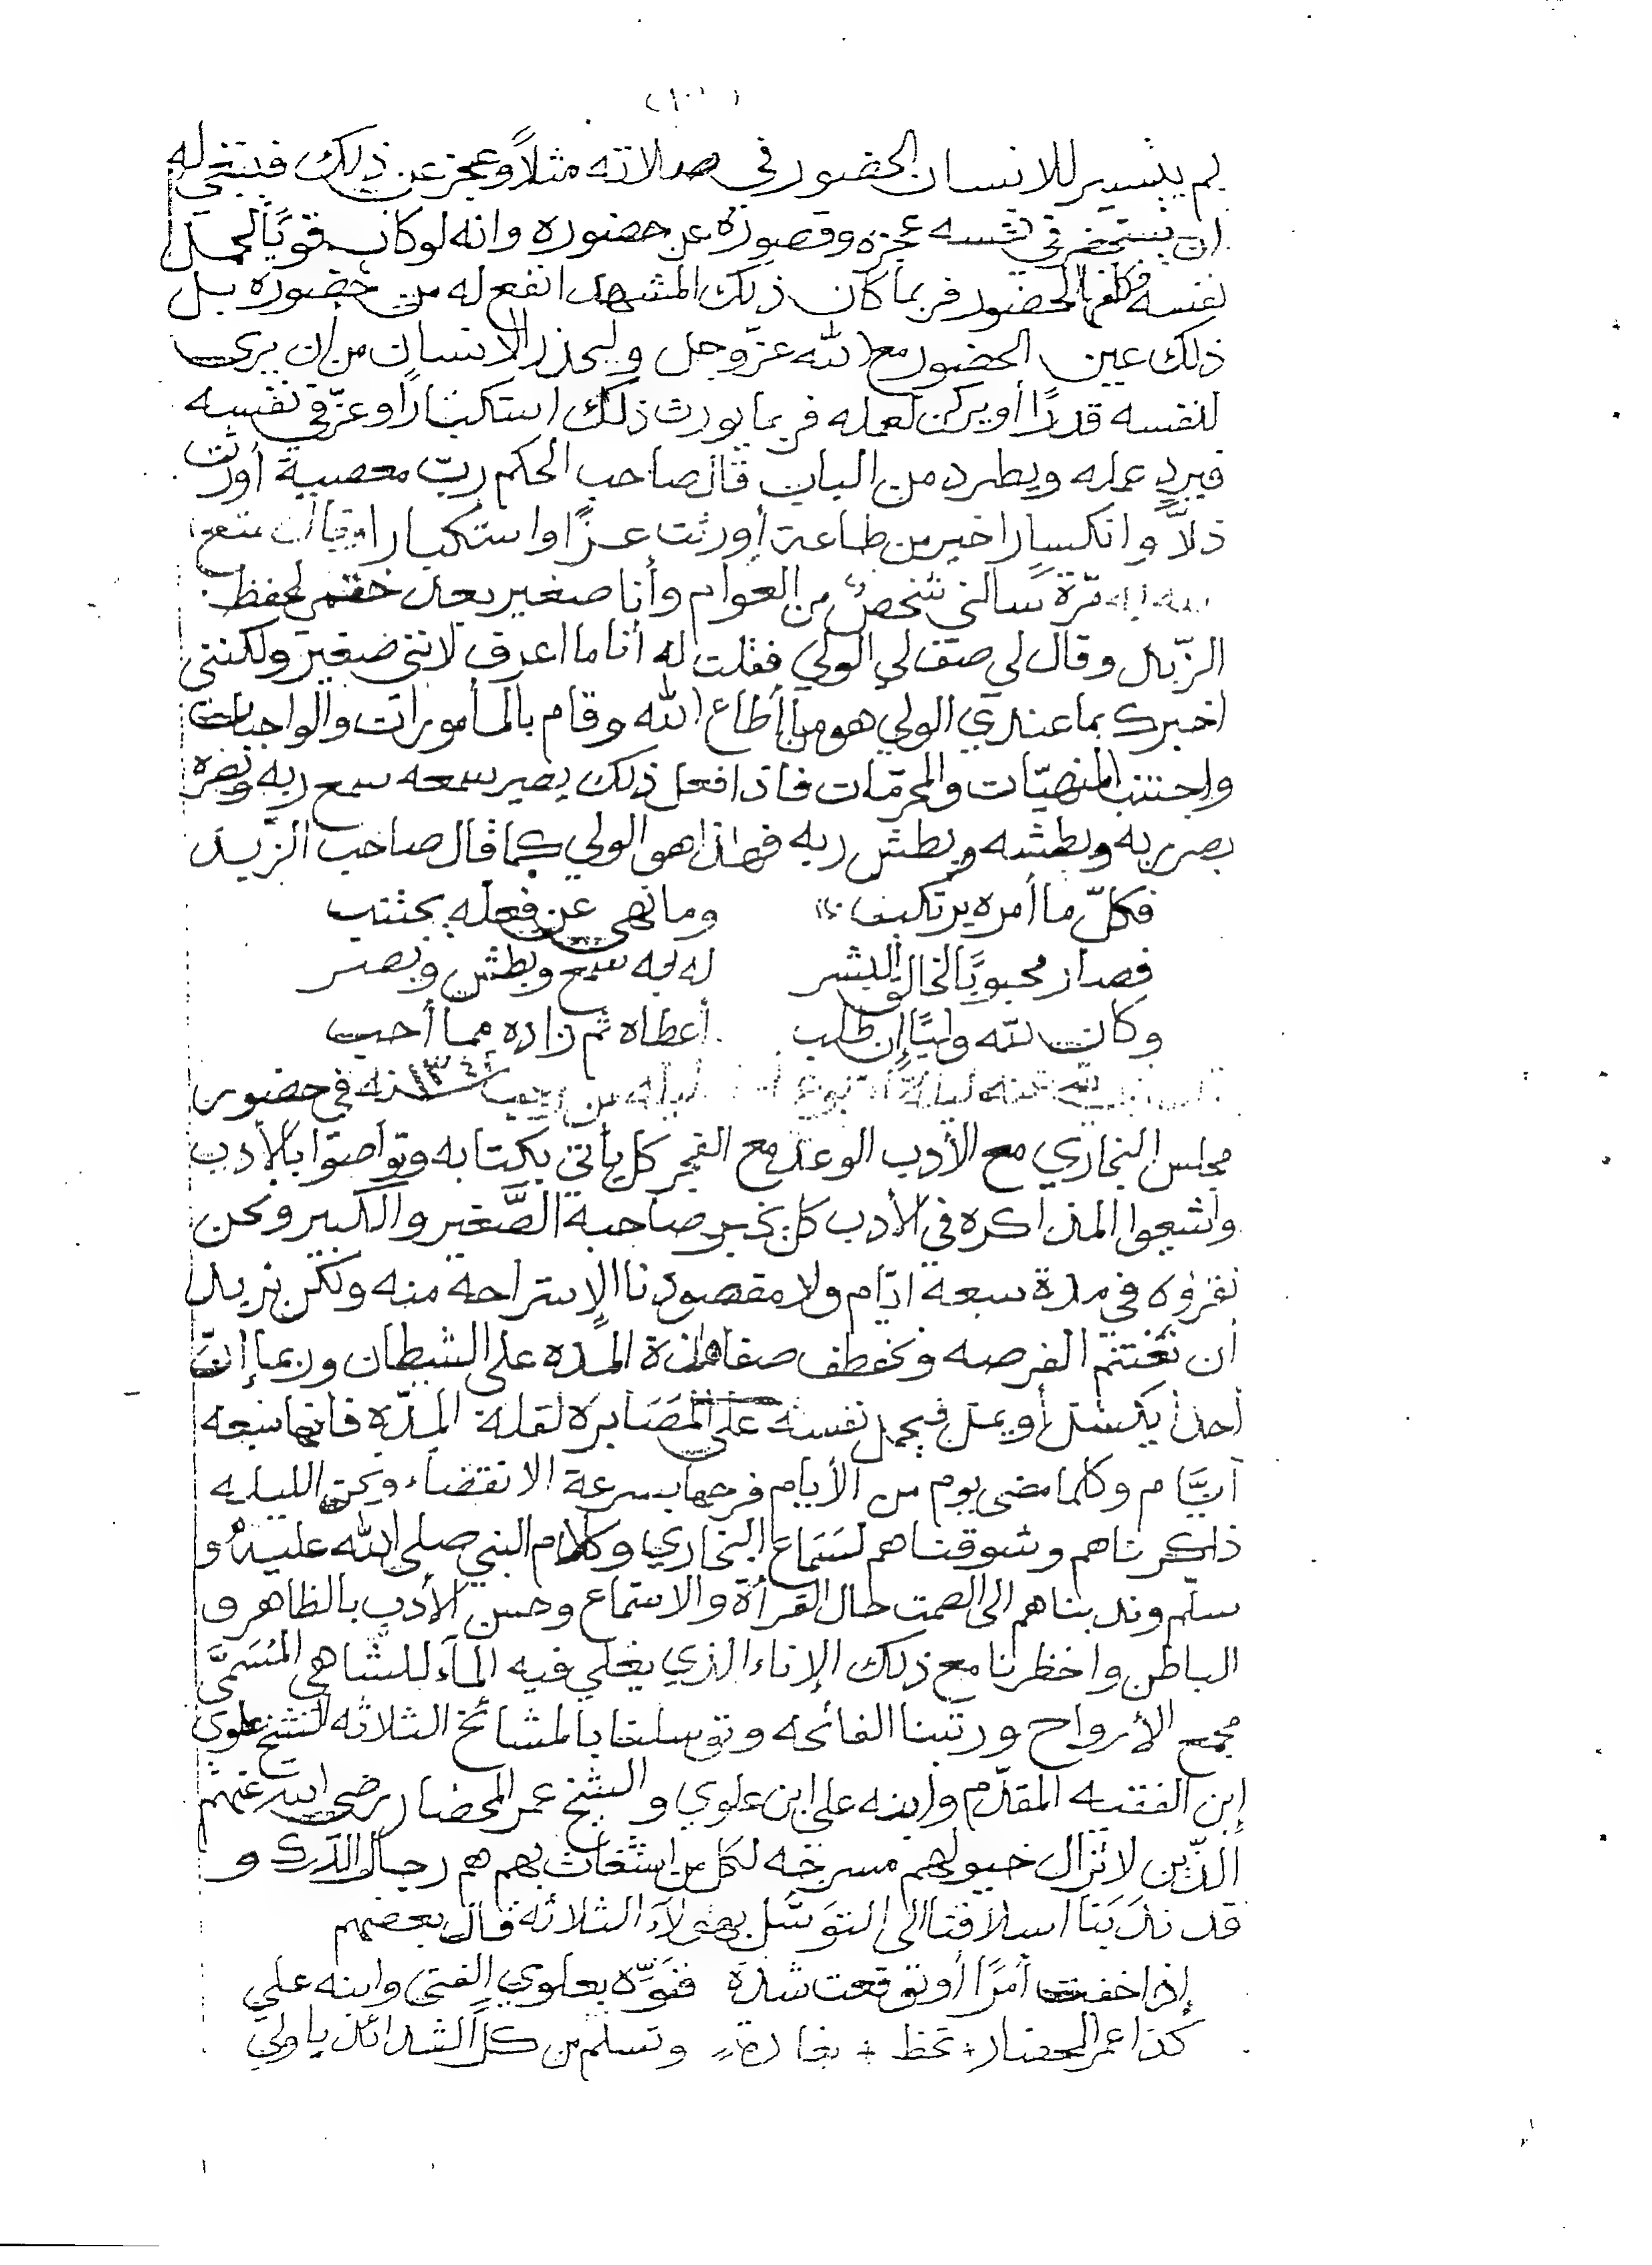 (١٠٠)
لم يتيسر للانسان الحضور في صلاته مثلاً وعجز عن ذلك فينبغي له
ان يستحضر في نفسه عجزه وقصوره عن حضوره وانه لو كان قويًا لحمل
نفسه وكلفها الحضور فربما كان ذلك المشهد انفع له من حضوره بل
ذلك عين الحضور مع الله عزّ وجل وليحذر الانسان من ان يرى
لنفسه قدرًا أو يركن لعمله فربما يورث ذلك استكبارًا وعزّ في نفسه
فيرد عمله ويطرد من الباب قال صاحب الحكم ربّ معصية أورثت
ذلاّ وانكسارا خير من طاعة أورثت عزًا واستكبارا
مرّة سألني شخصٌ من العوام وأنا صغير بعد ختمي لحفظ
الزّبد وقال لي صف لي الولي فقلت له أنا ما اعرف لانني صغير ولكنني
اخبرك بما عندي الولي هو من أطاع الله وقام بالمأمورات والواجبات
واجتنب المنهيّات والمحرّمات فاذا فعل ذلك يصير سمعه سمع ربه وبصره
بصر ربه وبطشه وبطش ربه فهاذا هو الولي كما قال صاحب الزّبد
فكلّ ما أمره يرتكب وما نهى عن فعله يجتنب
فصار محبوبًا لخالق البشر له به سمع وبطش وبصر
وكان لله وليًا إن طلب أعطاه ثم زاده مما أحب
ليلة من رجب سنة في حضور
مجلس البخاري مع الأدب الوعد مع الفجر كل يأتي بكتابه وتواصوا بالأدب
وأشيعوا المذاكره في الأدب كل يخبر صاحبه الصّغير والكبير ونحن
نقرؤه في مدة سبعة ايّام ولا مقصودنا الإستراحه منه ولكن نريد
أن نغتنم الفرصه ونخطف صفا هاذة المدّه على الشيطان وربما إنّ
أحدًا يكسل أو يمل فيحمل نفسه على المصَابرَة لقلة المدّه فانها سبعه
أيّام وكلما مضى يوم من الأيام فرحها بسرعة الانقضاء ونحن الليله
ذاكرناهم وشوقناهم لسَمَاع البخاري وكلام النبي صلى الله عليه و
سلّم وندبناهم الى الصمت حال القرأة والاستماع وحسن الأدب بالظاهر و
الباطن واحظرنا مع ذلك الإناء الذي يغلي فيه المآء للشاهي المُسَمَّى
مجمع الأرواح ورتبنا الفاتحه وتوسلنا بالمشائخ الثلاثه الشيخ علوي
إبن الفقيه المقدّم وابنه علي ابن علوي والشيخ عمر المحضار رضي الله عنهم
الذّين لا تزال خيولهم مسرجه لكل من استغاث بهم هم رجال الدّرك و
قد ندَبَنا اسلافنا الى التوسّل بهؤلاء الثلاثه قال بعضهم
إذا خفت أمرًا أو توقعت شدّة فنَوّه بعلوي الفتى وابنه علي
كذا عمر المحضار تحظ بغارة وتسلم من كلّ الشدائد يا ولي